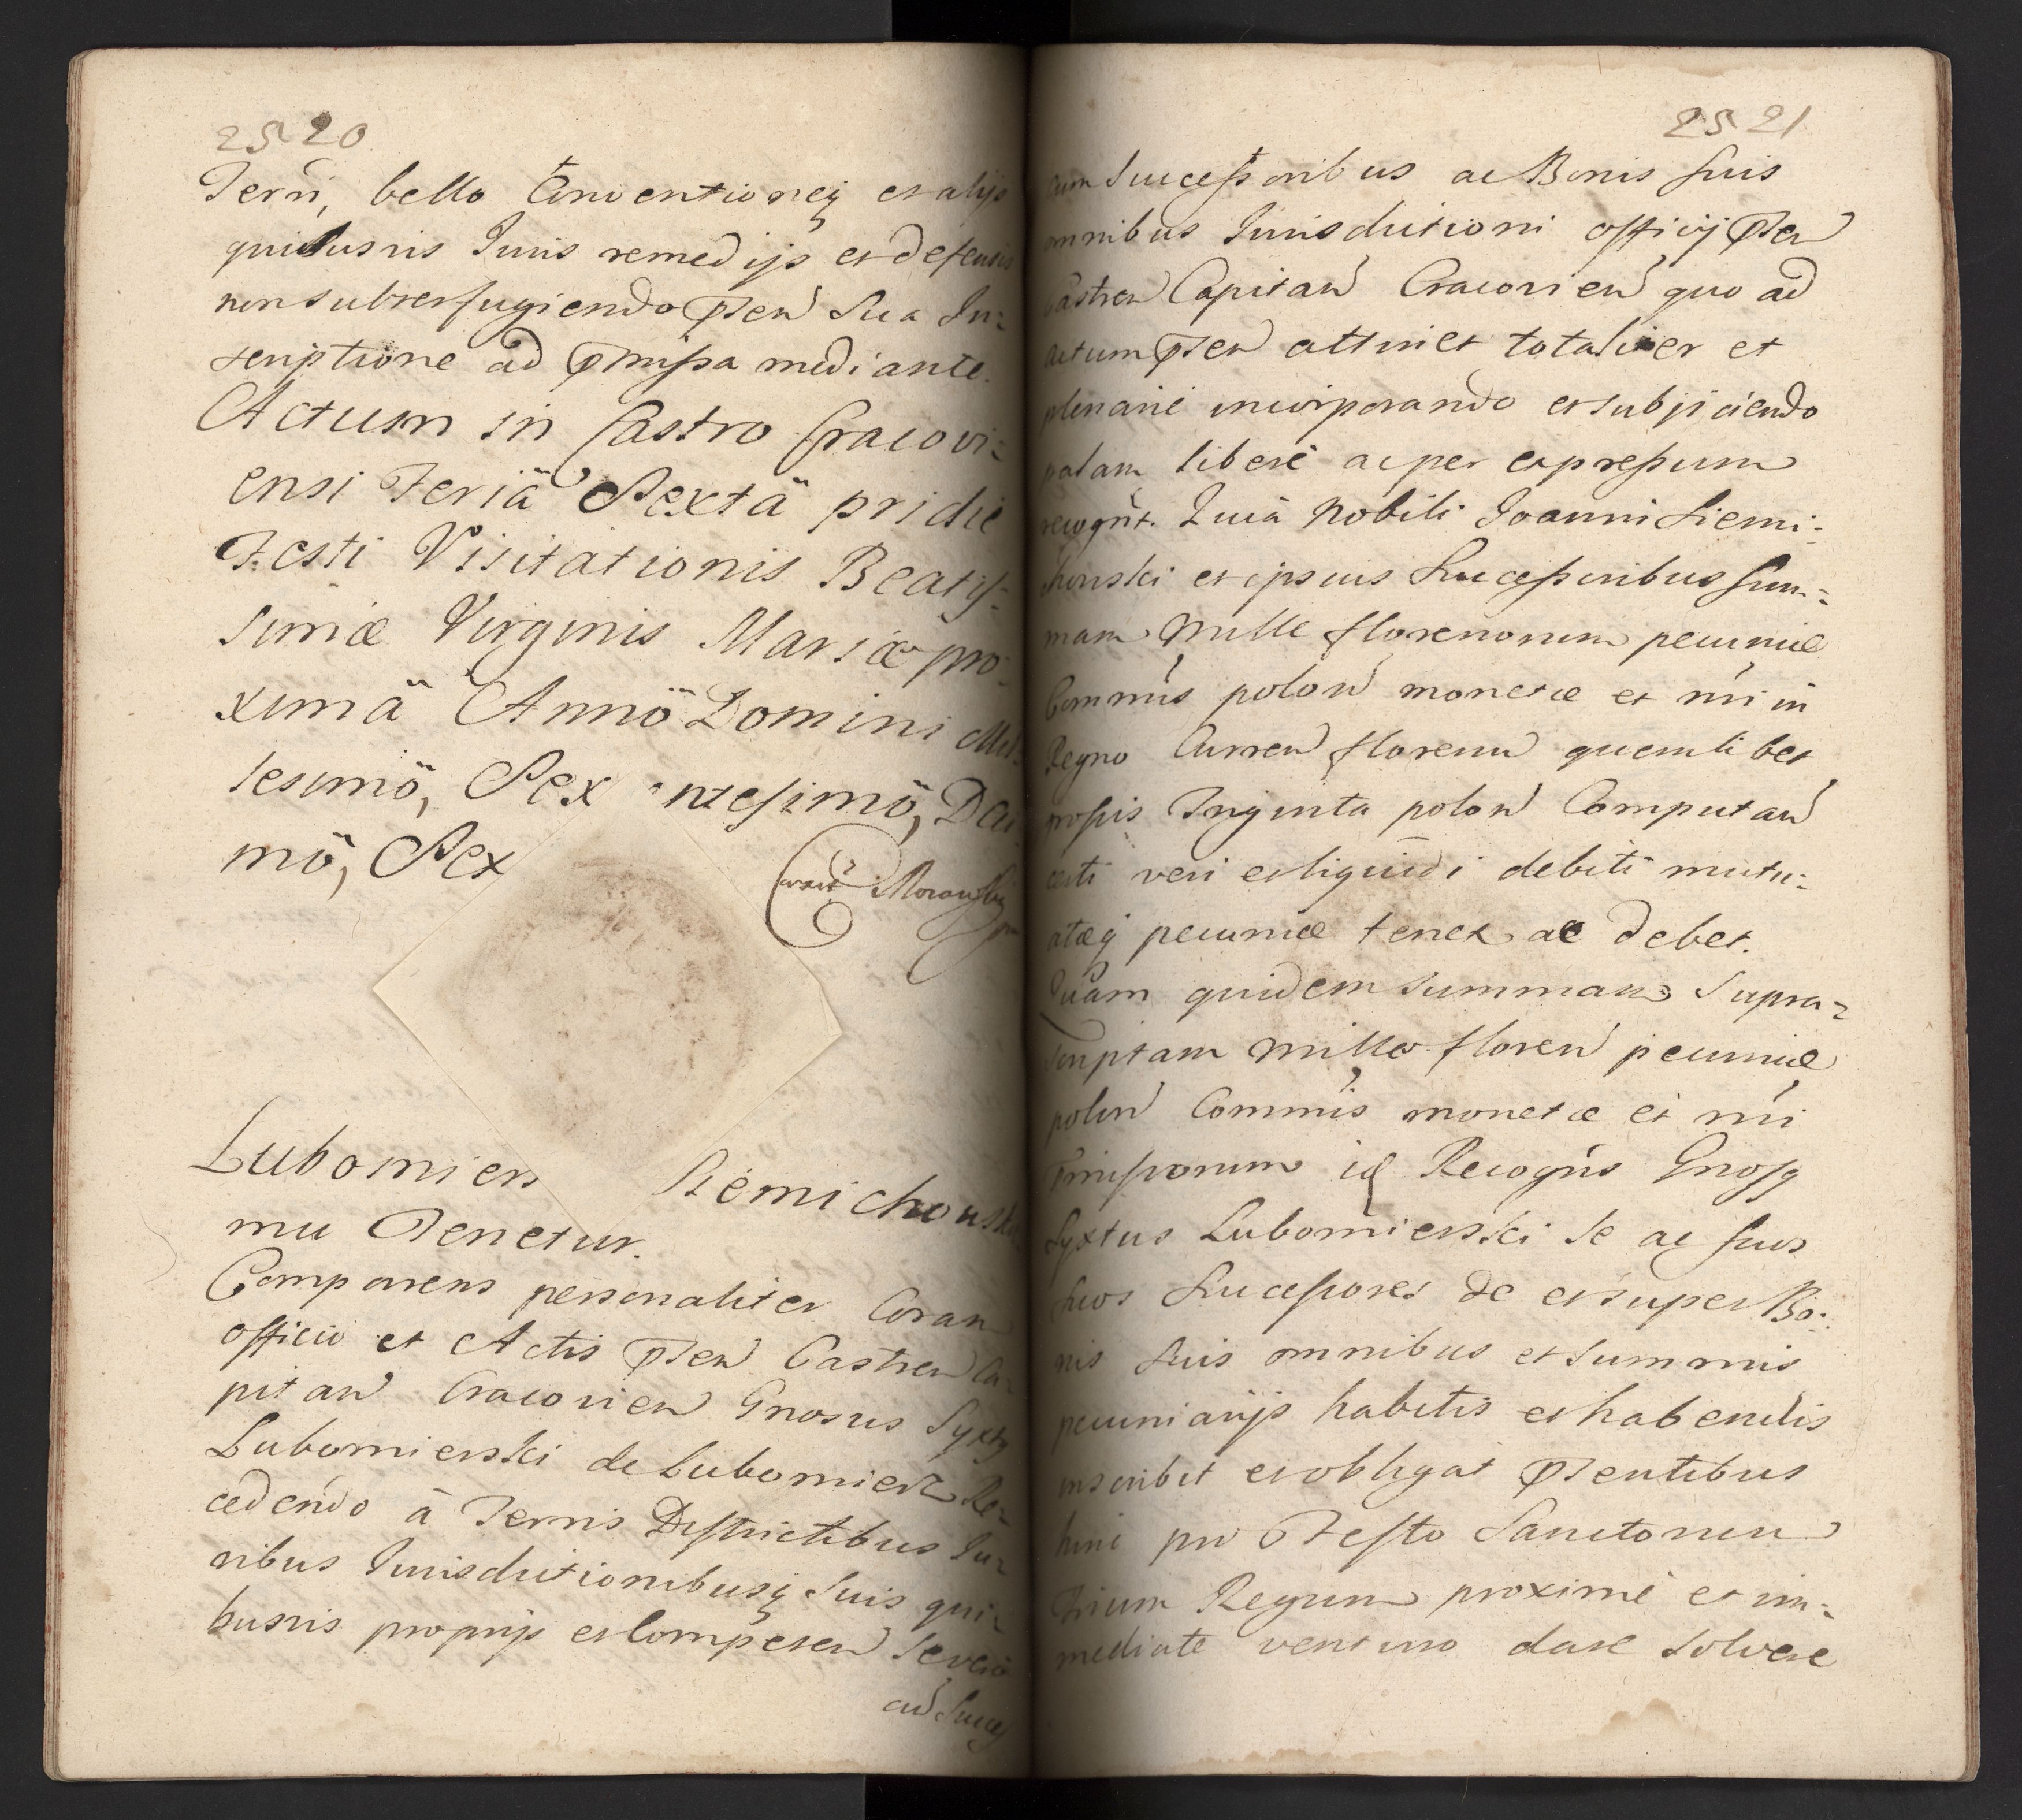 2520
Terri, bello Conventioneq et alijs
quibusvis Iuris remedijs et defensis
non subterfugiendo Pnten Sua In-
scriptione ad Pmissa mediante.
Actum in Castro Cracovi-
ensi Feriâ Sextâ pridie
Festi Visitationis Beatis-
simæ Virginis Mariæ pro-
ximâ Annô Domini Mil-
lesimô, Sex ntesimô, Deci
mô, Sex
Lubomiers Siemichonsk
mu Tenetur.
Comparens personaliter Coram
officio et Actis Pnten Castren Ca-
pitan Cracovien Gnosus Syxtq
Lubomierski de Lubomierz Re-
cedendo à Terris Districtibus Iu-
ribus Iurisdictionibusq Suis qui-
busvis proprijs et Competen Severo
cu Succes
2521
cum Successoribus ac Bonis suis
omnibus Iurisdictioni officij Pnten
Castren Capitan Cracovien quo ad
actum Pnten attinet totaliter et
plenarie incorporando et subjiciendo
palam libere ac per expressum
recognt. Quia Nobili Joanni Siemi-
chonski et ipsius Successoribus sum-
mam Mille florenorum pecuniæ
Commis polon monetæ et nri in
Regno Curren florenu quemlibet
grossis Triginta polon Computan
certi veri et liquidi debiti mutu-
atæq pecuniæ tenet ac debet.
Quam quidem summam Supra-
scriptam mille floren pecuniæ
polon Commis monetæ et nri
Pmissorum id Recogns Gnosq
Syxtus Lubomierski Se ac suos
suos Successores de et super Bo-
nis Suis omnibus et summis
pecuniarijs habitis et habendis
inscribit et obligat Pntentibus
hinc pro Festo Sanctorum
Trium Regum proxime et im-
mediate venturo dare solvere